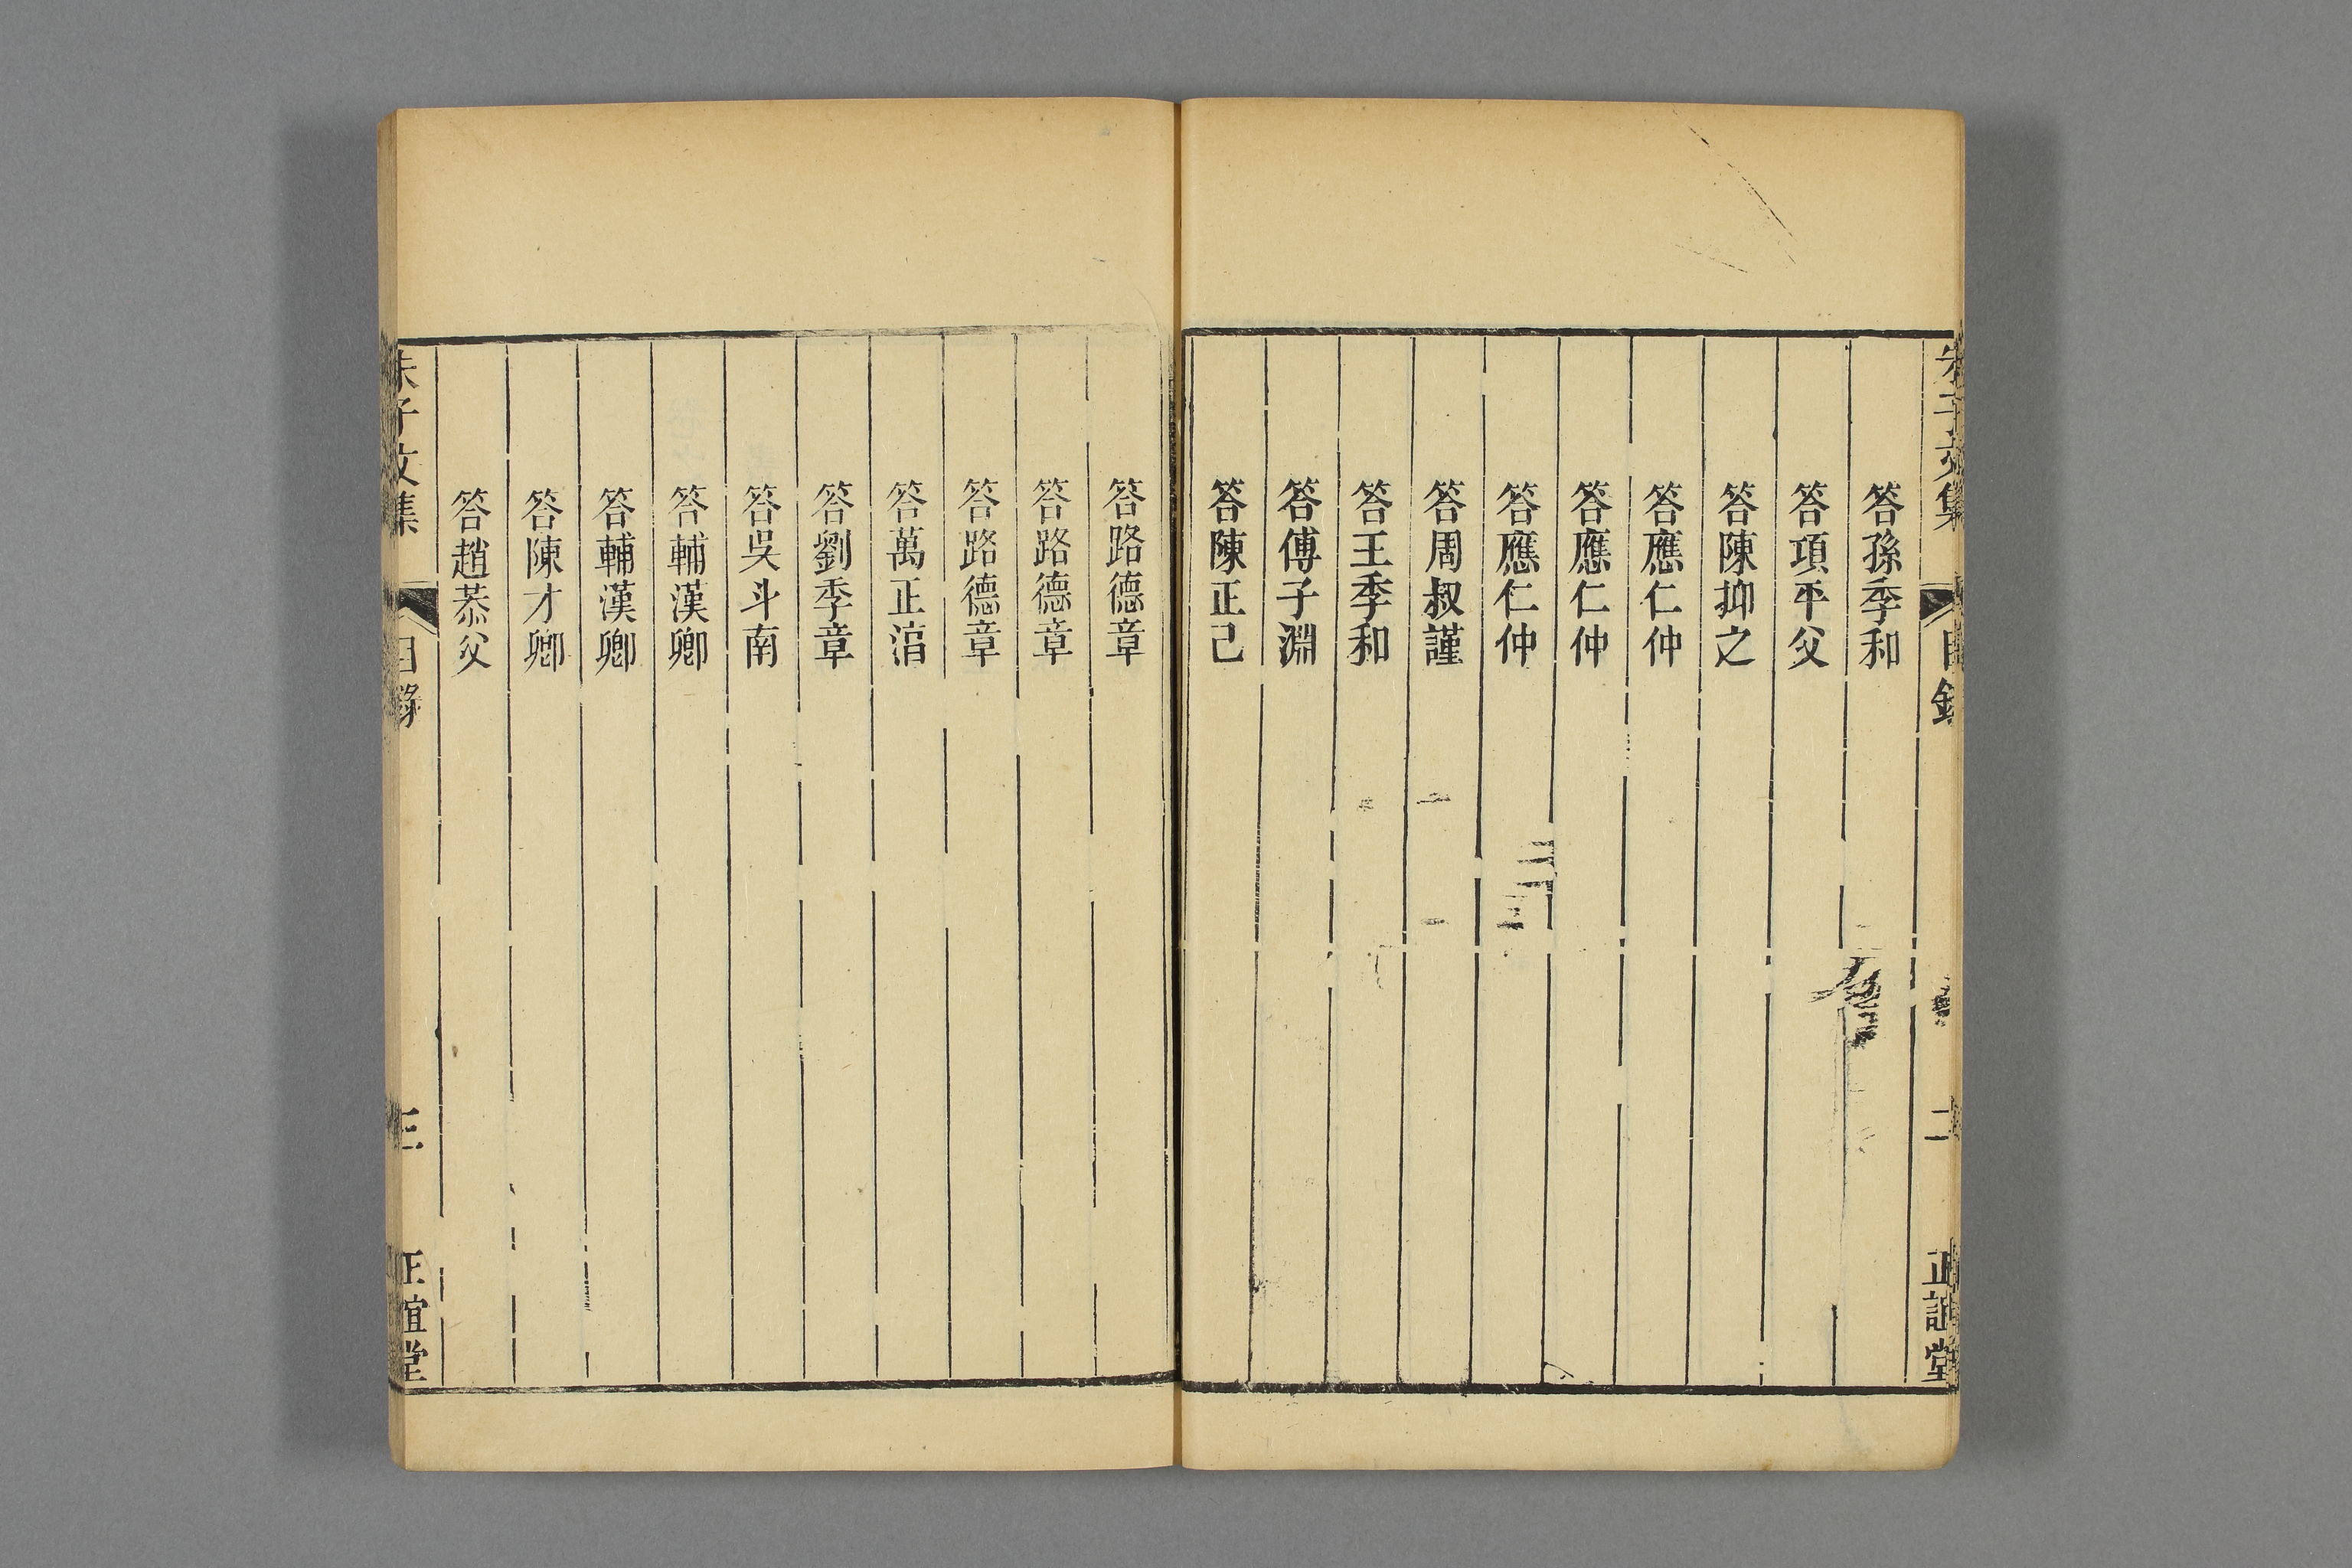 朱子文集
目錄
二
正誼堂
答孫季和
答項平父
答陳抑之
答應仁仲
答應仁仲
答應仁仲
答周叔謹
答王季和
答傅子淵
答陳正己
答路德章
答路德章
答路德章
答萬正淳
答劉季章
答吳斗南
答輔漢卿
答輔漢卿
答陳才卿
答趙恭父
朱子文集
目錄
三
正誼堂